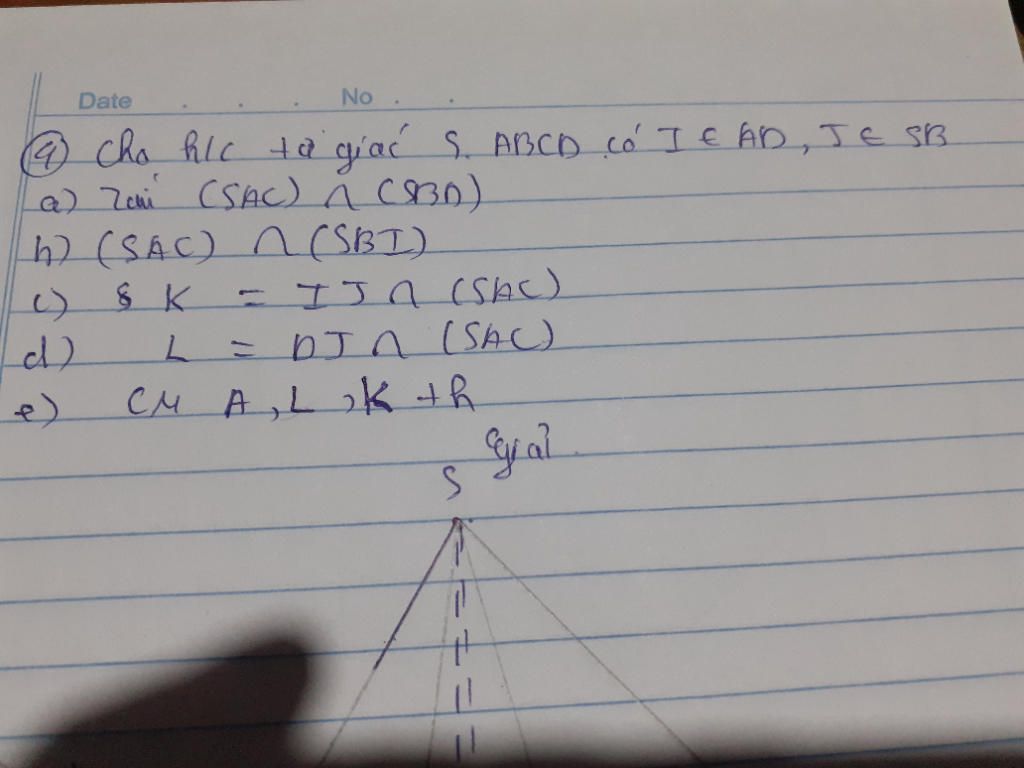 Date . . . No . .
④ Cho h/c tứ giác S. ABCD có I ∈ AD, J ∈ SB
a) Tìm (SAC) ∩ (SBD)
b) (SAC) ∩ (SBI)
c) K = IJ ∩ (SAC)
d) L = DJ ∩ (SAC)
e) CM A, L, K th
giải
S